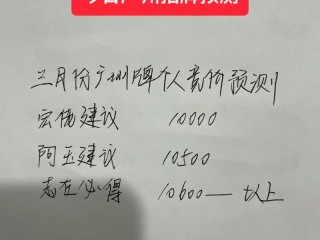 三月份广州牌个人竞价预测
宏伟建议 10000
阿玉建议 10500
志在必得 10600——以上